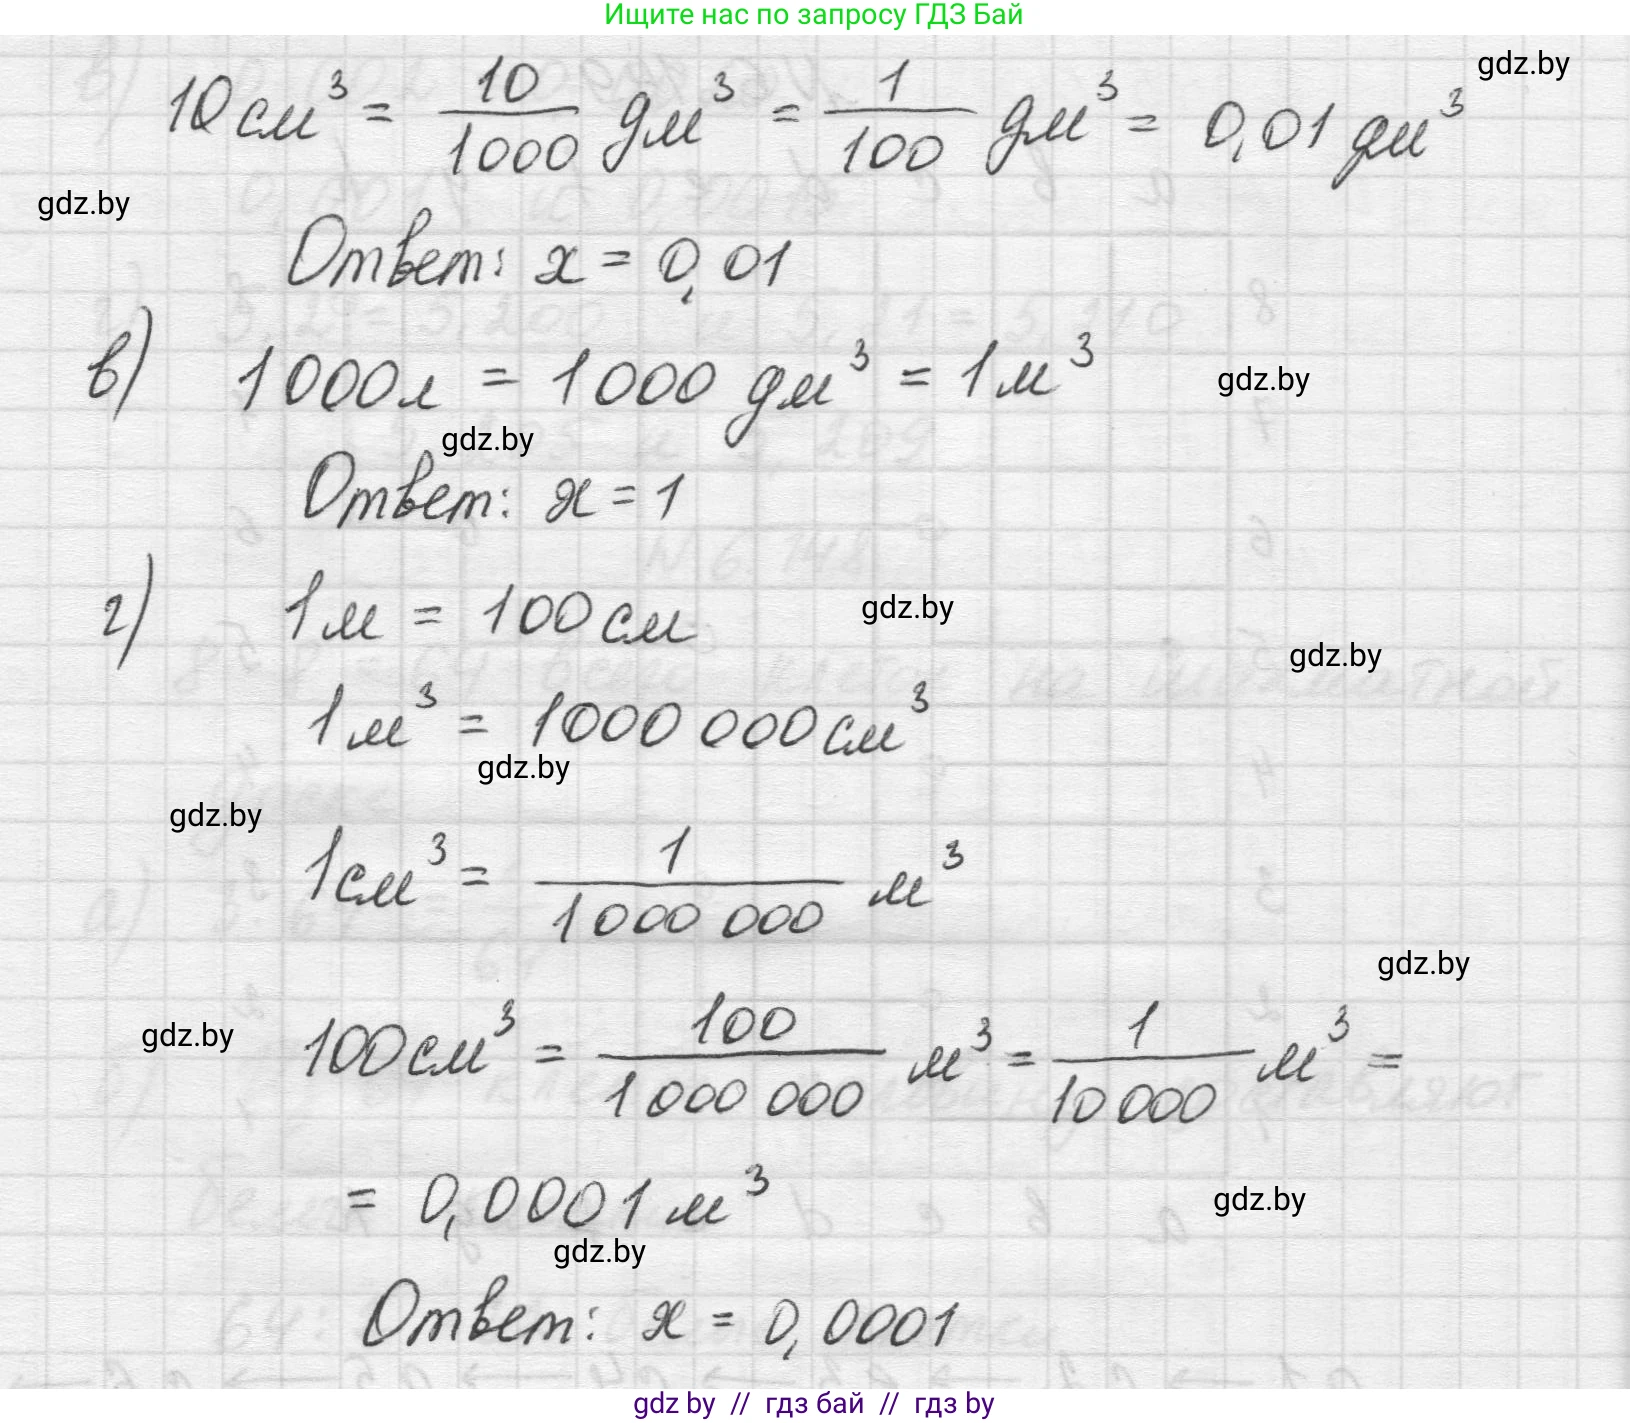 Ищите нас по запросу ГДЗ Бай
10 см³ = 10/1000 дм³ = 1/100 дм³ = 0,01 дм³
gdz.by
gdz.by
Ответ: x = 0,01
в) 1000 л = 1000 дм³ = 1 м³
gdz.by
gdz.by
Ответ: x = 1
г) 1 м = 100 см
gdz.by
gdz.by
1 м³ = 1000 000 см³
gdz.by
gdz.by
1 см³ = 1/1 000 000 м³
gdz.by
100 см³ = 100/1 000 000 м³ = 1/10 000 м³ =
gdz.by
= 0,0001 м³
gdz.by
gdz.by
Ответ: x = 0,0001
gdz by // гдз бай // гдз by